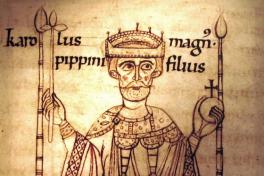 karolus magn᷒
pippini filius